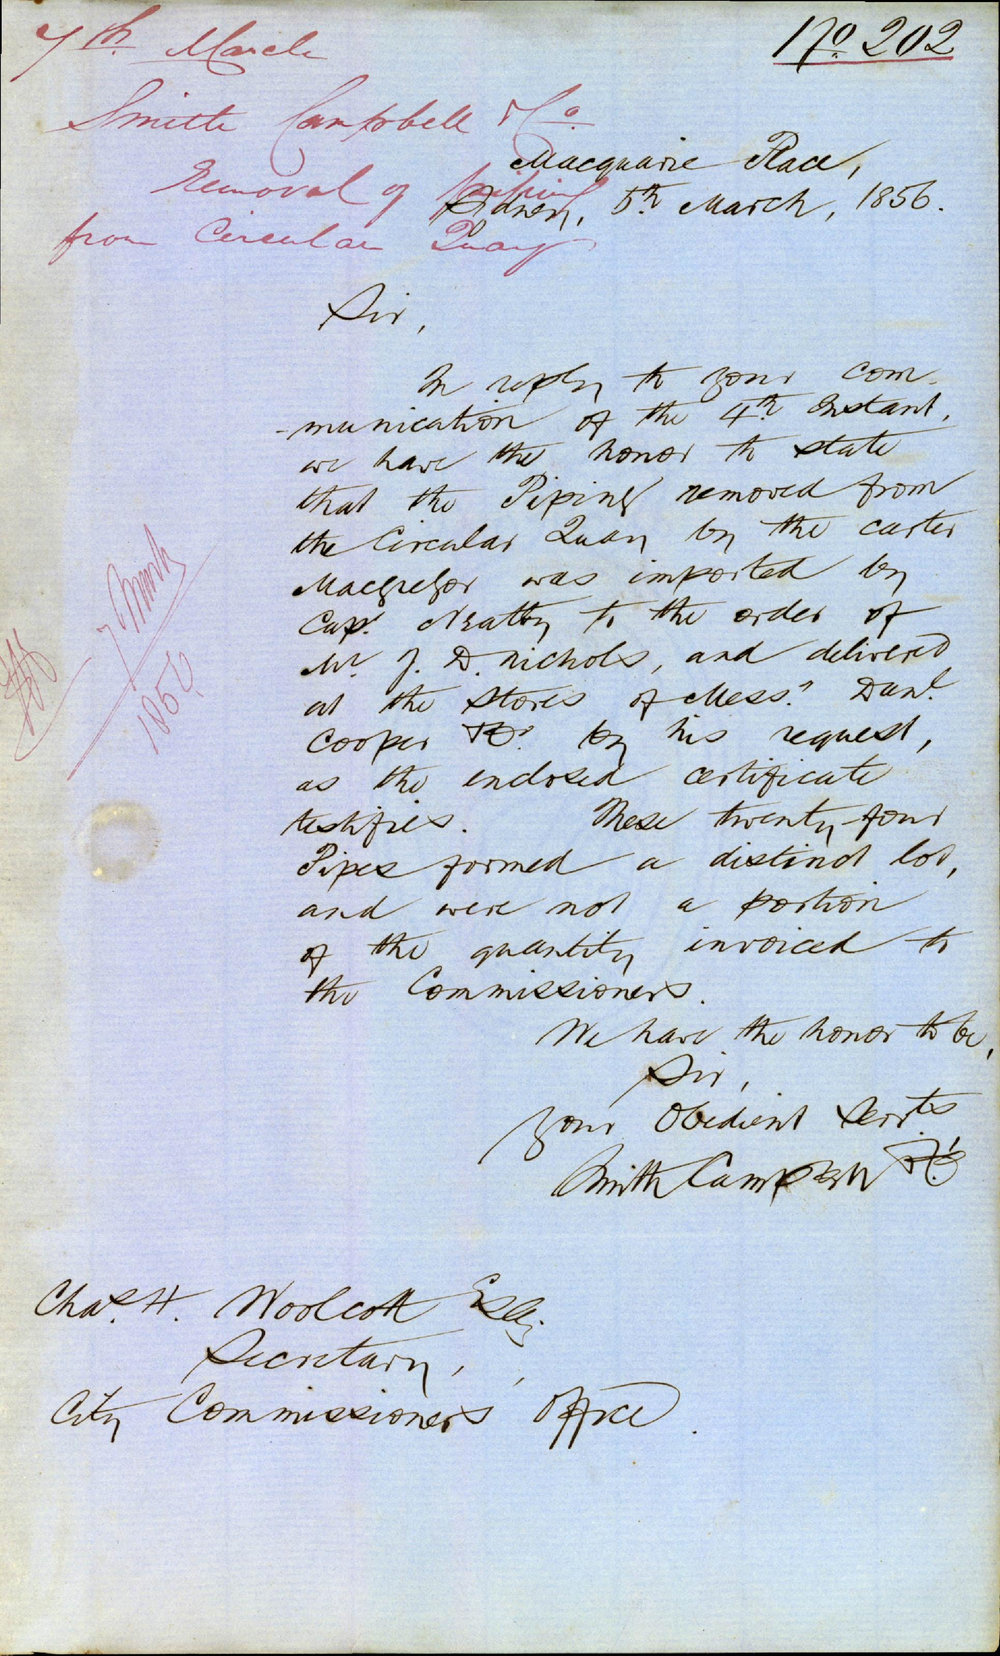 No 202
7th March
Smith Campbell & Co
Removal of Piping
from Circular Quay
Macquarie Place,
Sidney, 5th March, 1856.
Sir,
In reply to your com-
-munication of the 4th Instant,
we have the honor to state
that the Piping removed from
the Circular Quay by the carter
Macgregor was imported by
Capt. Neatby to the order of
Mr J. D. Nichols, and delivered
at the Stores of Messrs Danl.
Cooper & Co. by his request,
as the enclosed certificate
testifies. These twenty-four
Pipes formed a distinct lot,
and were not a portion
of the quantity invoiced to
the Commissioners.
We have the honor to be,
Sir,
Your Obedient Servts
Smith Campbell & Co
7 March
1856
Chas. H. Woolcott Esq.
Secretary,
City Commissioners Office.